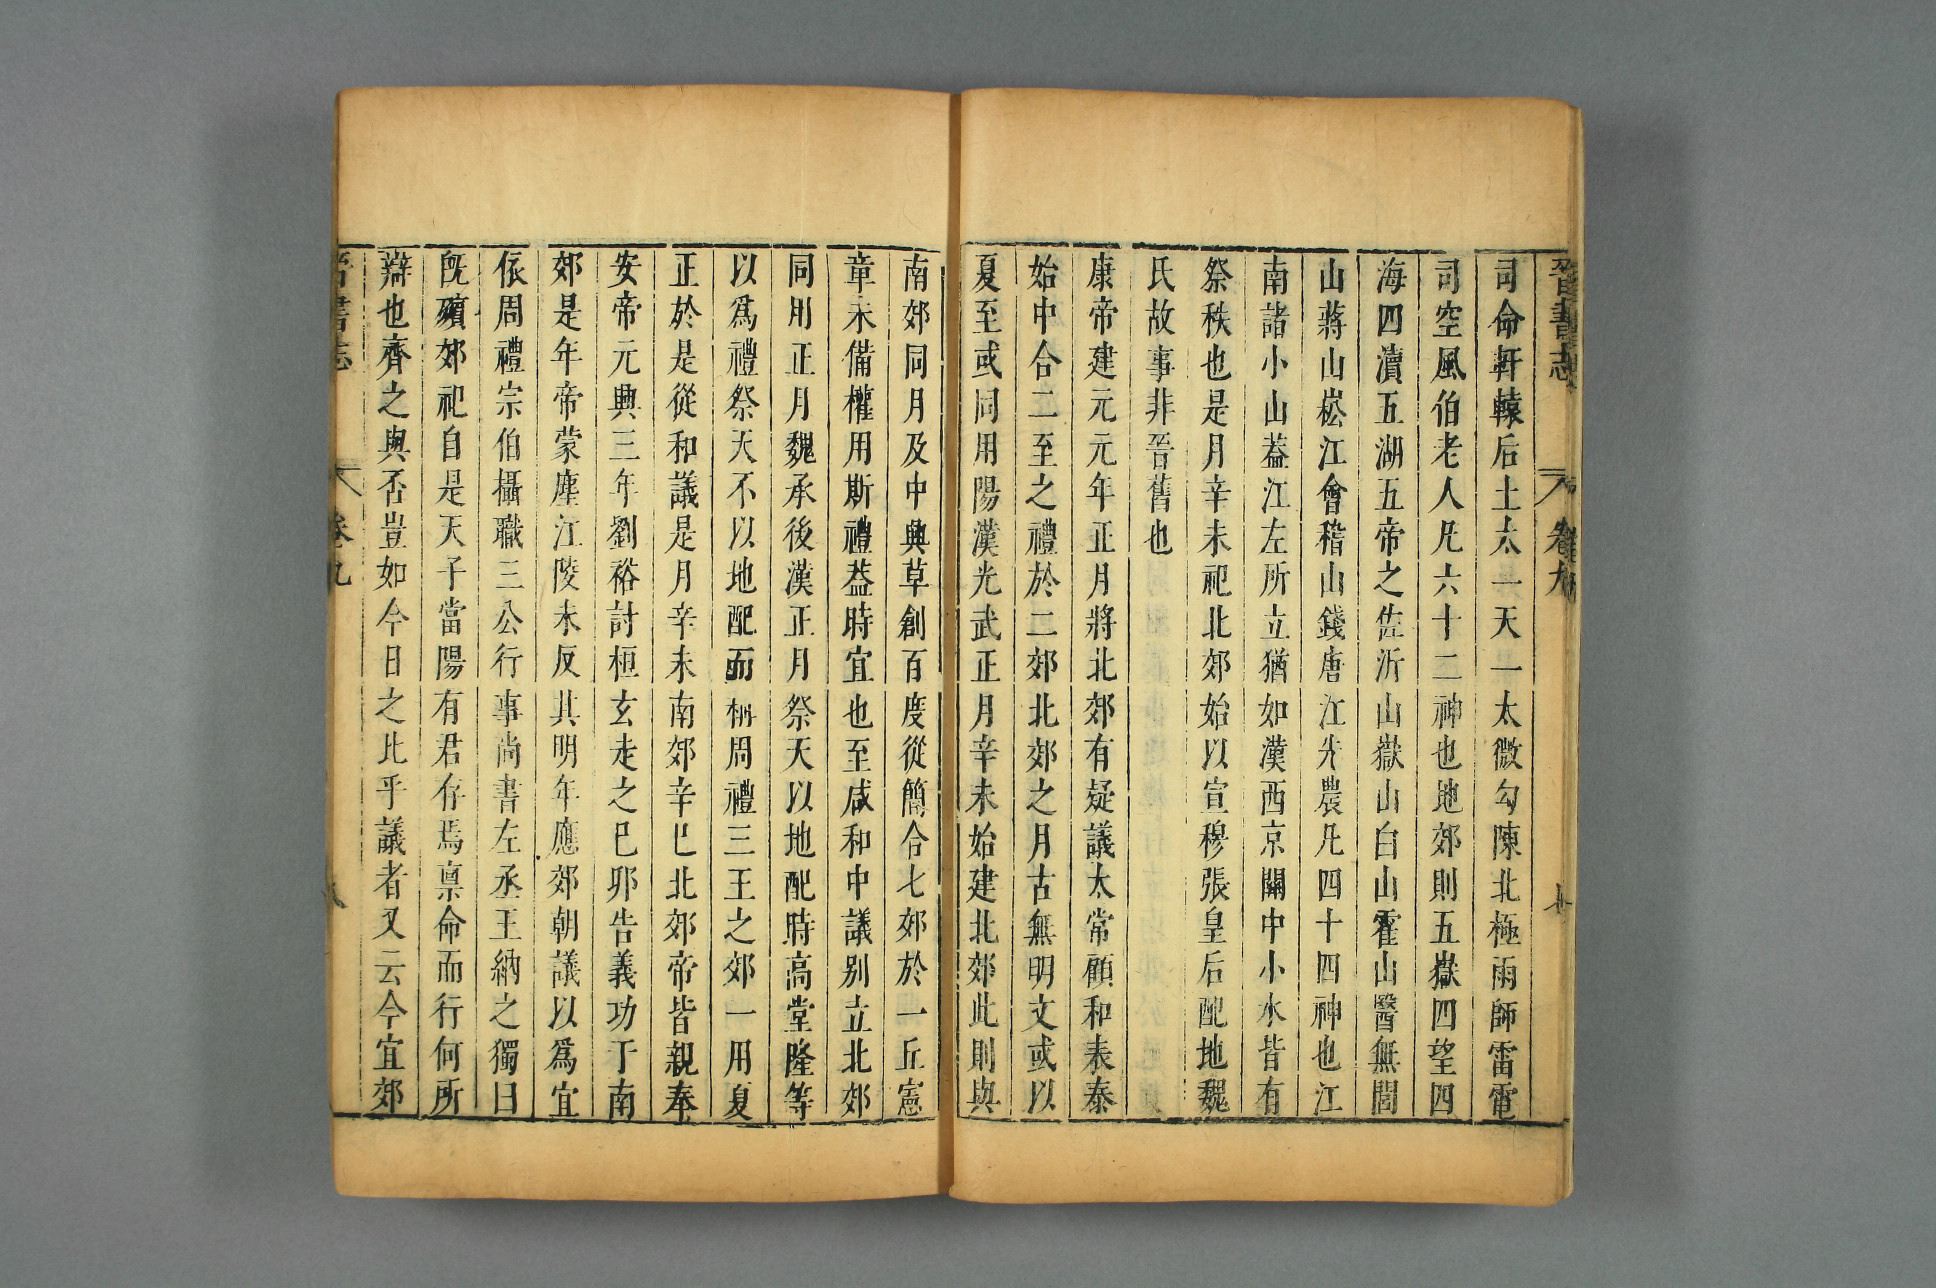 晉書志 卷九
司命軒轅后土太一天一太微勾陳北極雨師雷電
司空風伯老人凡六十二神也地郊則五嶽四望四
海四瀆五湖五帝之佐沂山嶽山白山霍山醫無閭
山蔣山崧江會稽山錢唐江先農凡四十四神也江
南諸小山蓋江左所立猶如漢西京關中小水皆有
祭秩也是月辛未祀北郊始以宣穆張皇后配地魏
氏故事非晉舊也
康帝建元元年正月將北郊有疑議太常顧和表泰
始中合二至之禮於二郊北郊之月古無明文或以
夏至或同用陽漢光武正月辛未始建北郊此則與
南郊同月及中興草創百度從簡合七郊於一丘憲
章未備權用斯禮葢時宜也至咸和中議别立北郊
同用正月魏承後漢正月祭天以地配時高堂隆等
以爲禮祭天不以地配而稱周禮三王之郊一用夏
正於是從和議是月辛未南郊辛巳北郊帝皆親奉
安帝元興三年劉裕討桓玄走之巳卯告義功于南
郊是年帝蒙塵江陵未反其明年應郊朝議以爲宜
依周禮宗伯攝職三公行事尚書左丞王納之獨曰
旣殯郊祀自是天子當陽有君存焉稟命而行何所
辯也齊之與否豈如今日之比乎議者又云今宜郊
晉書志 卷九